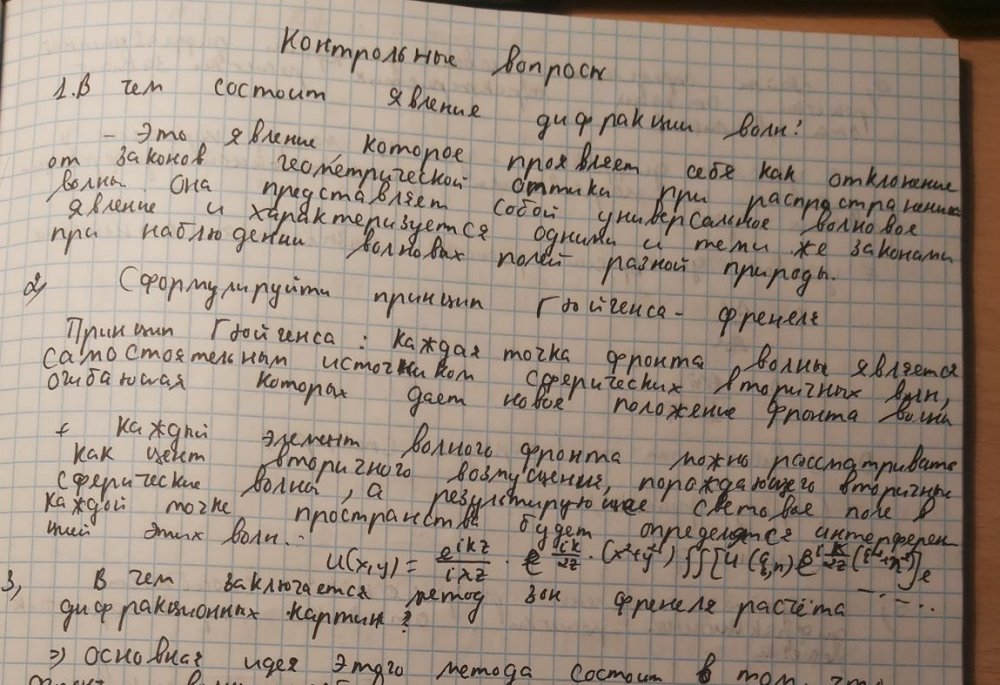 Контрольные вопросы
1. В чем состоит явление дифракции волн?
- Это явление, которое проявляет себя как отклонение
от законов геометрической оптики при распространении
волны. Она представляет собой универсальное волновое
явление и характеризуется одними и теми же законами
при наблюдении волновых полей разной природы.
2) Сформулируйти принцип Гюйгенса - френеля
Принцип Гюйгенса: каждая точка фронта волны является
самостоятельным источником сферических вторичных волн,
огибающая которых дает новое положение фронта волны
+ каждый элемент волного фронта можно рассматривать
как цент вторичного возмущения, пораждающего вторичные
сферические волны, а результирующее световое поле в
каждой точке пространства будет определятся интерферен
цией этих волн.
U(x,y) = e^{ikz}/iλz · e^{ik/2z} · (x²+y²) ∫∫[U(ξ,η) e^{i k/2z (ξ²+η²)}] e
3) В чем заключается метод зон френеля расчёта
дифракционных картин?
=> основная идея этого метода состоит в том, что